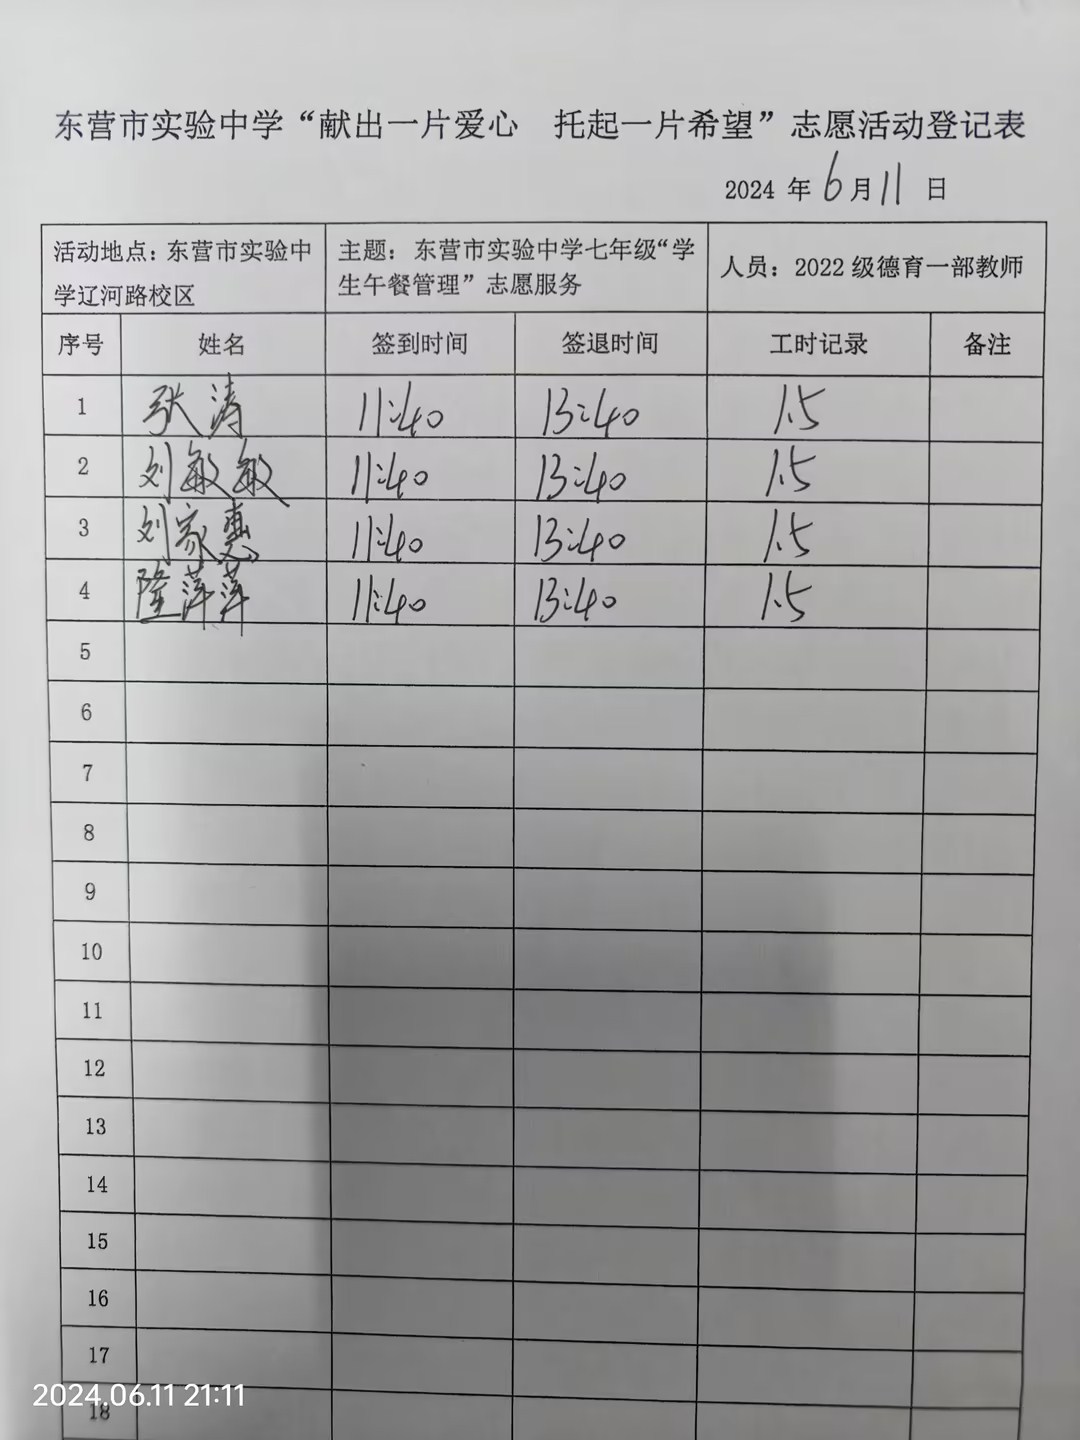 东营市实验中学“献出一片爱心　托起一片希望”志愿活动登记表
2024 年 6 月 11 日
活动地点：东营市实验中学辽河路校区 主题：东营市实验中学七年级“学生午餐管理”志愿服务 人员：2022 级德育一部教师
序号 姓名 签到时间 签退时间 工时记录 备注
1 张涛 11:40 13:40 1.5
2 刘敏敏 11:40 13:40 1.5
3 刘家惠 11:40 13:40 1.5
4 隆萍萍 11:40 13:40 1.5
5
6
7
8
9
10
11
12
13
14
15
16
17
18
2024.06.11 21:11